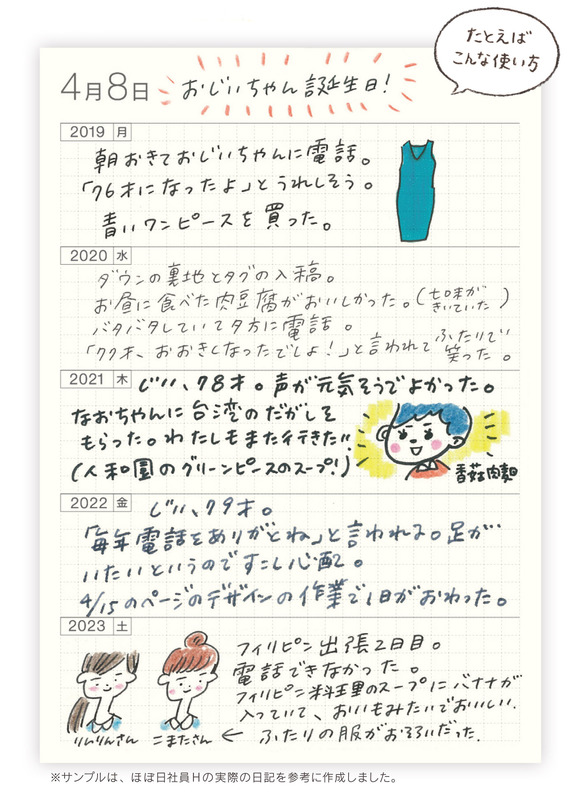 たとえば
こんな使い方
4月8日 おじいちゃん誕生日!
2019 月
朝おきておじいちゃんに電話。
「76才になったよ」とうれしそう。
青いワンピースを買った。
2020 水
ダウンの裏地とタグの入稿。
お昼に食べた肉豆腐がおいしかった。(七味が
きいていた)
バタバタしていて夕方に電話。
「77才、おおきくなったでしょ!」と言われてふたりで
笑った。
2021 木
じいい、78才。声が元気そうでよかった。
なおちゃんに台湾のだがしを
もらった。わたしもまた行きたい!!
(人和園のグリーンピースのスープ!)
香菇肉麵
2022 金
じいい、79才。
「毎年電話をありがとね」と言われる。足が…
いたいというのですこし心配。
4/15のページのデザインの作業で1日がおわった。
2023 土
フィリピン出張2日目。
電話できなかった。
フィリピン料理のスープにバナナが
入っていて、おいもみたいでおいしい。
りんりんさん こまたさん ← ふたりの服がおそろいだった。
※サンプルは、ほぼ日社員Hの実際の日記を参考に作成しました。